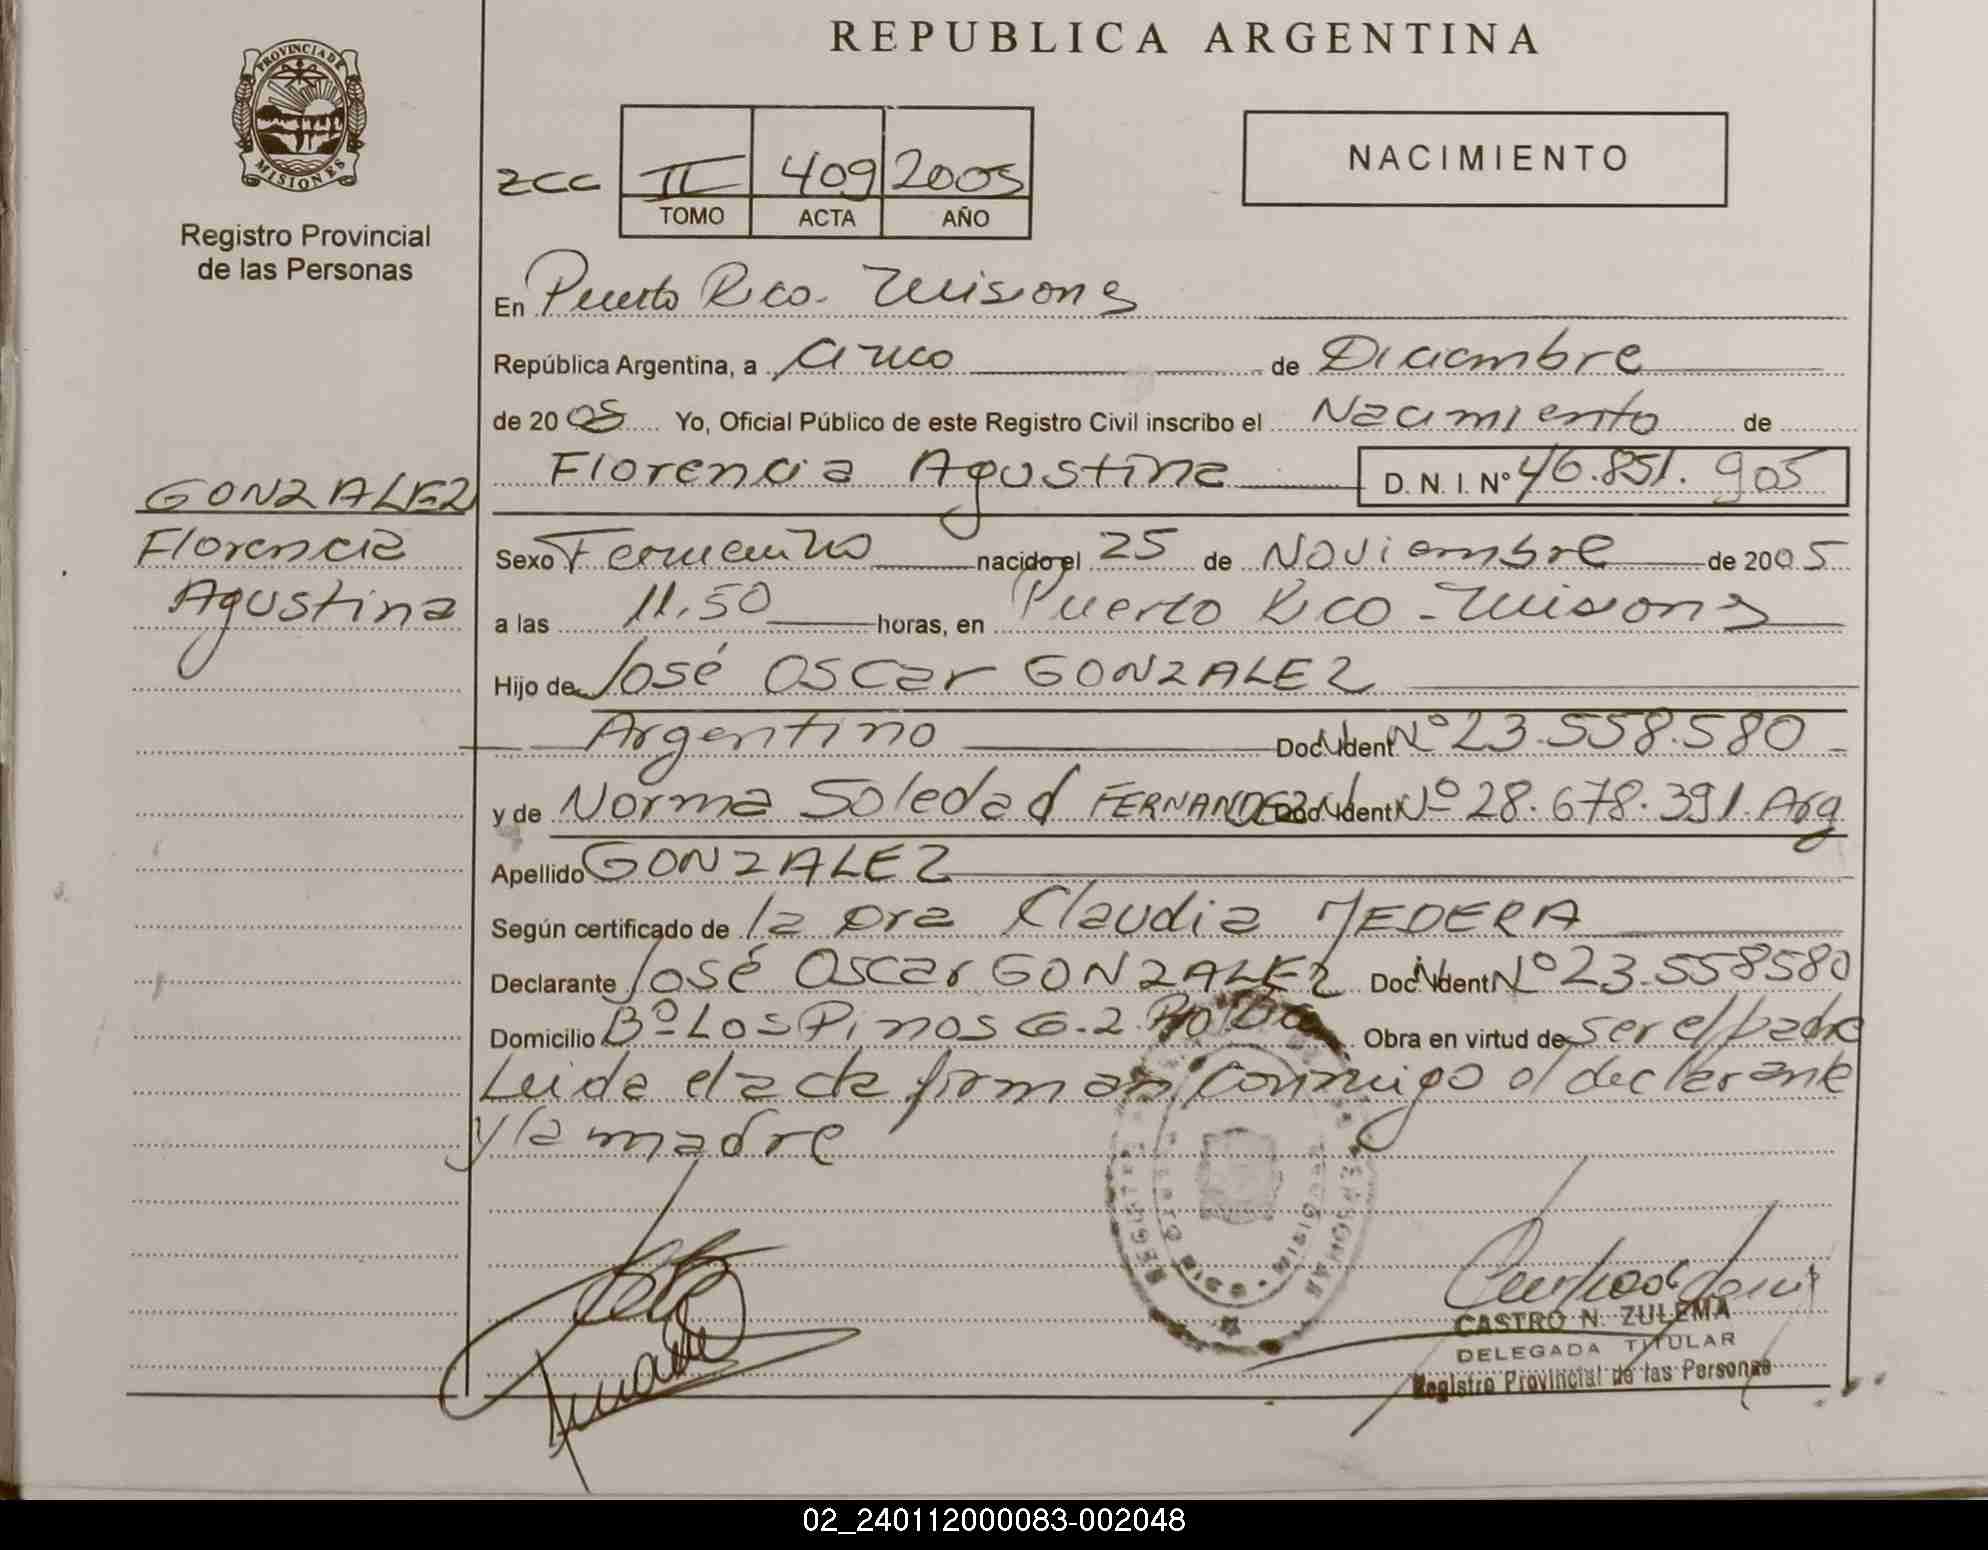 REPUBLICA ARGENTINA
PROVINCIA DE MISIONES
Registro Provincial
de las Personas
NACIMIENTO
2CC II 409 2005
TOMO ACTA AÑO
En Puerto Rico - Misiones
República Argentina, a cinco de Diciembre
de 2005 Yo, Oficial Público de este Registro Civil inscribo el Nacimiento de
Florencia Agustina D. N. I. Nº 46.851.905
GONZALEZ
Florencia
Agustina
Sexo Femenino nacido el 25 de Noviembre de 2005
a las 11.50 horas, en Puerto Rico - Misiones
Hijo de José Oscar GONZALEZ
Argentino Doc. Ident Nº 23.558.580
y de Norma Soledad FERNANDEZ Doc. Ident Nº 28.678.391. Arg
Apellido GONZALEZ
Según certificado de la Dra Claudia MEDERA
Declarante José Oscar GONZALEZ Doc. Ident Nº 23.558580
Domicilio Bº Los Pinos G-2 Obra en virtud de ser el padre
Leida el acta firman conmigo el declarante
y la madre
CASTRO N. ZULEMA
DELEGADA TITULAR
Registro Provincial de las Personas
02_240112000083-002048